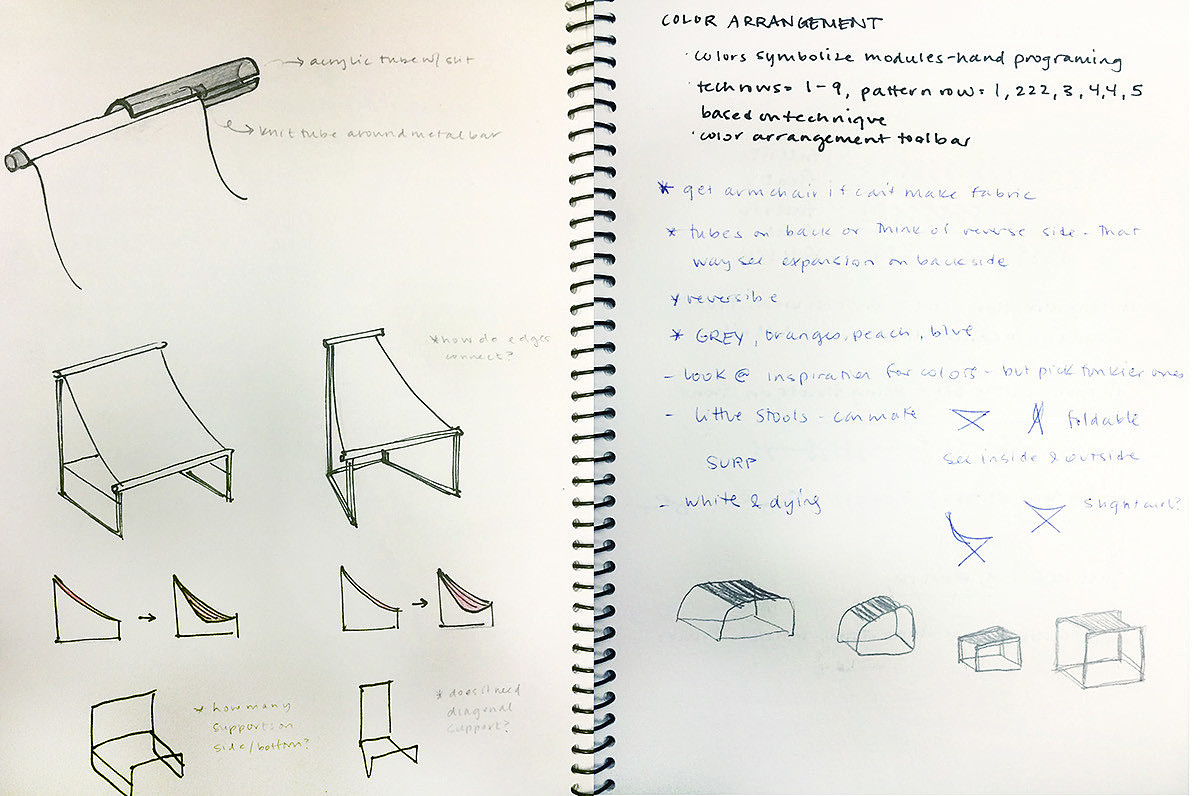 → acrylic tube w/ slit
→ knit tube around metal bar
*how do edges
connect?
* how many
supports on
side/bottom?
* does it need
diagonal
support?
COLOR ARRANGEMENT
· colors symbolize modules-hand programing
· tech rows = 1-9, pattern row = 1, 222, 3, 4,4, 5
based on technique
· color arrangement toolbar
* get armchair if can't make fabric
* tubes on back or think of reverse side - that
way see expansion on backside
* reversible
* GREY, oranges, peach, blue
- look @ inspiration for colors - but pick funkier ones
- little stools - can make foldable
SURP see inside & outside
- white & dying slight curl?